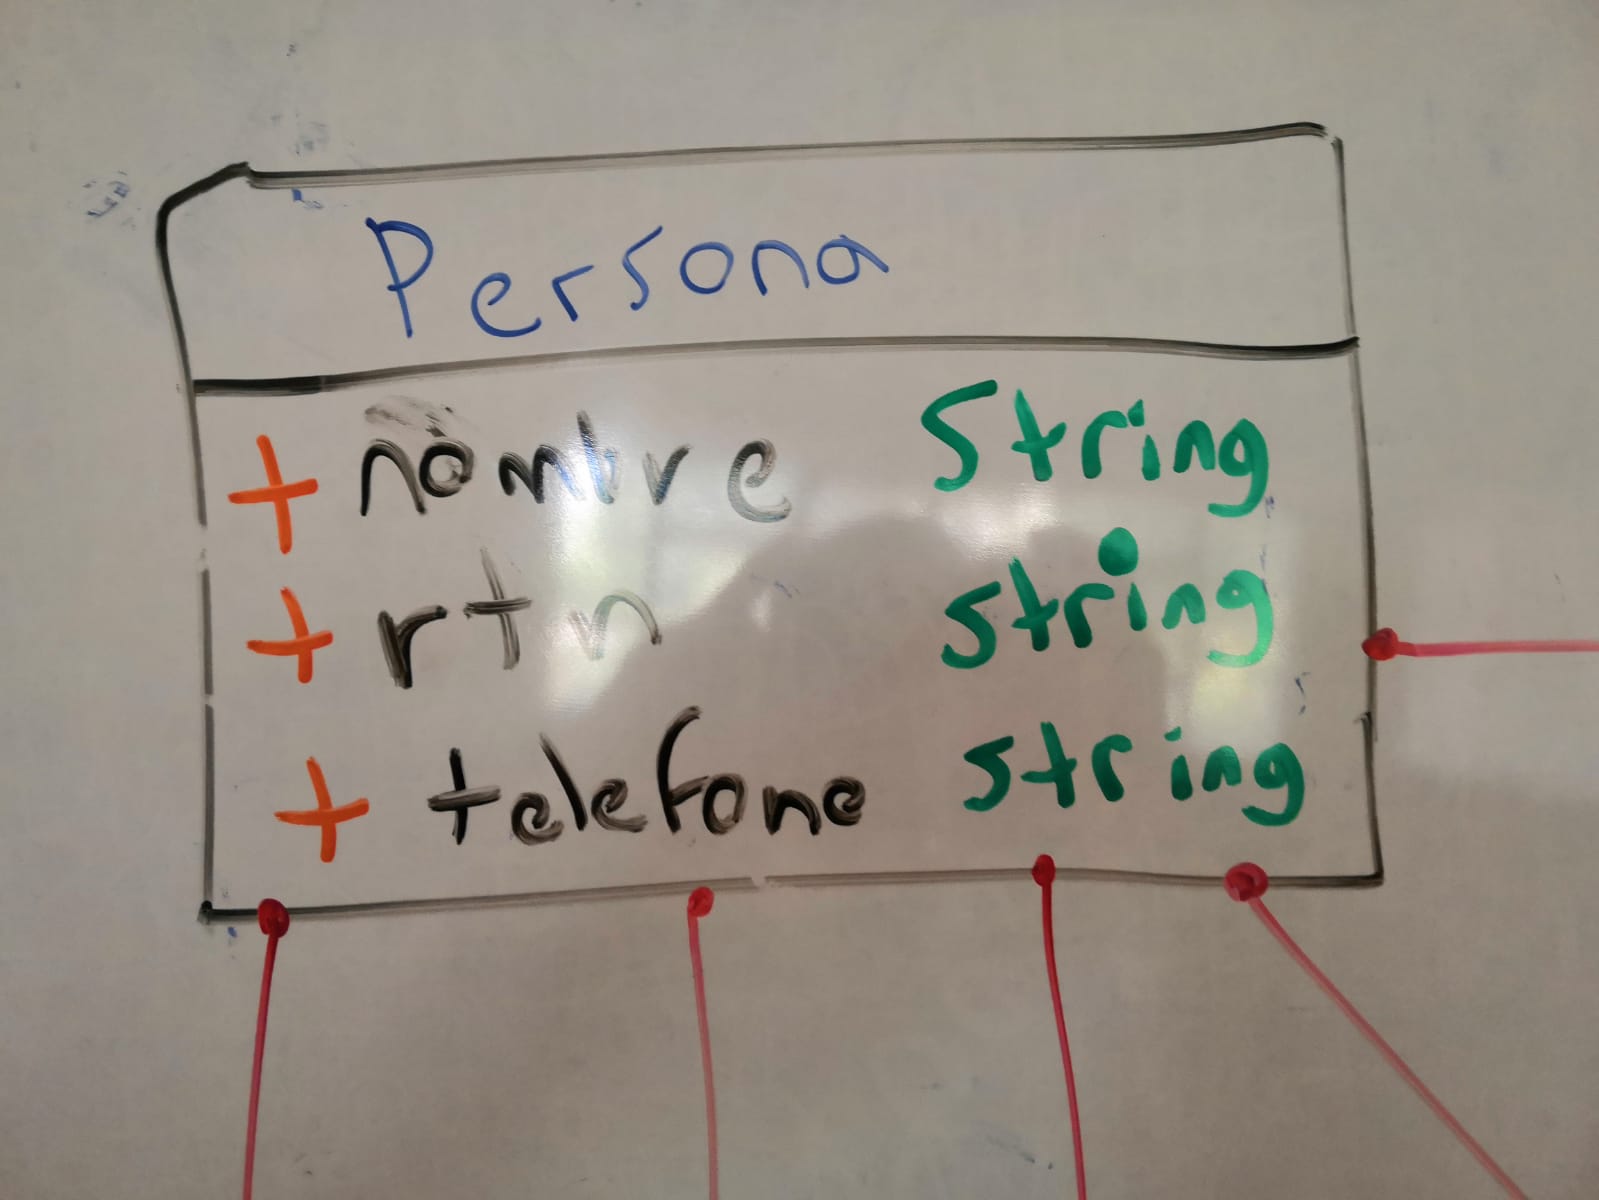 Persona
+ nombre String
+ rtn string
+ telefone string